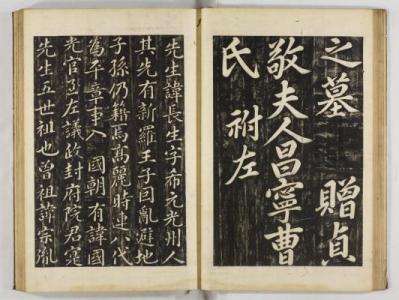 之墓 贈貞
敬夫人昌寧曹
氏 祔左
先生諱長生字希元光州人
其先有新羅王子因亂避地
子孫仍籍焉高麗時連八代
為平章事入 國朝有諱國
光官至左議政封府院君寔
先生五世祖也曾祖諱宗胤